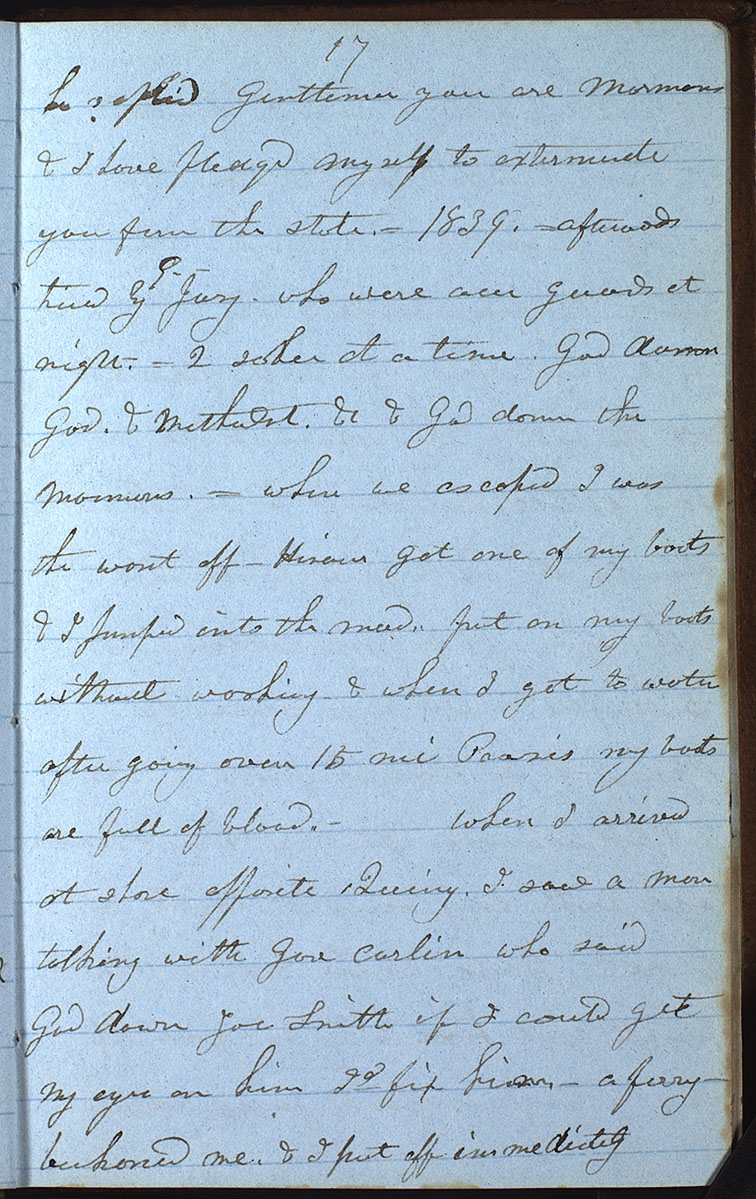 17
he replied Gentlemen you are Mormons
& I have pledgd myself to exterminate
you from the state. — 1839. — afterwods
tried by Jury. who were our Guards at
night. — 2 sober at a time. God damn
God. & Methodist. &c & God damn the
Mormons. — when we escaped I was
the worst off — Hiram got one of my boots
& I jumped into the mud. put on my boots
without washing & when I got to water
after going over 15 mi Prairie my boots
are full of blood. — When I arrived
at shore opposite Quincy. I saw a man
talking with Gov Carlin who said
God damn Joe Smith if I could get
my eye on him I'd fix him — a ferry
beckoned me. & I put off immediately